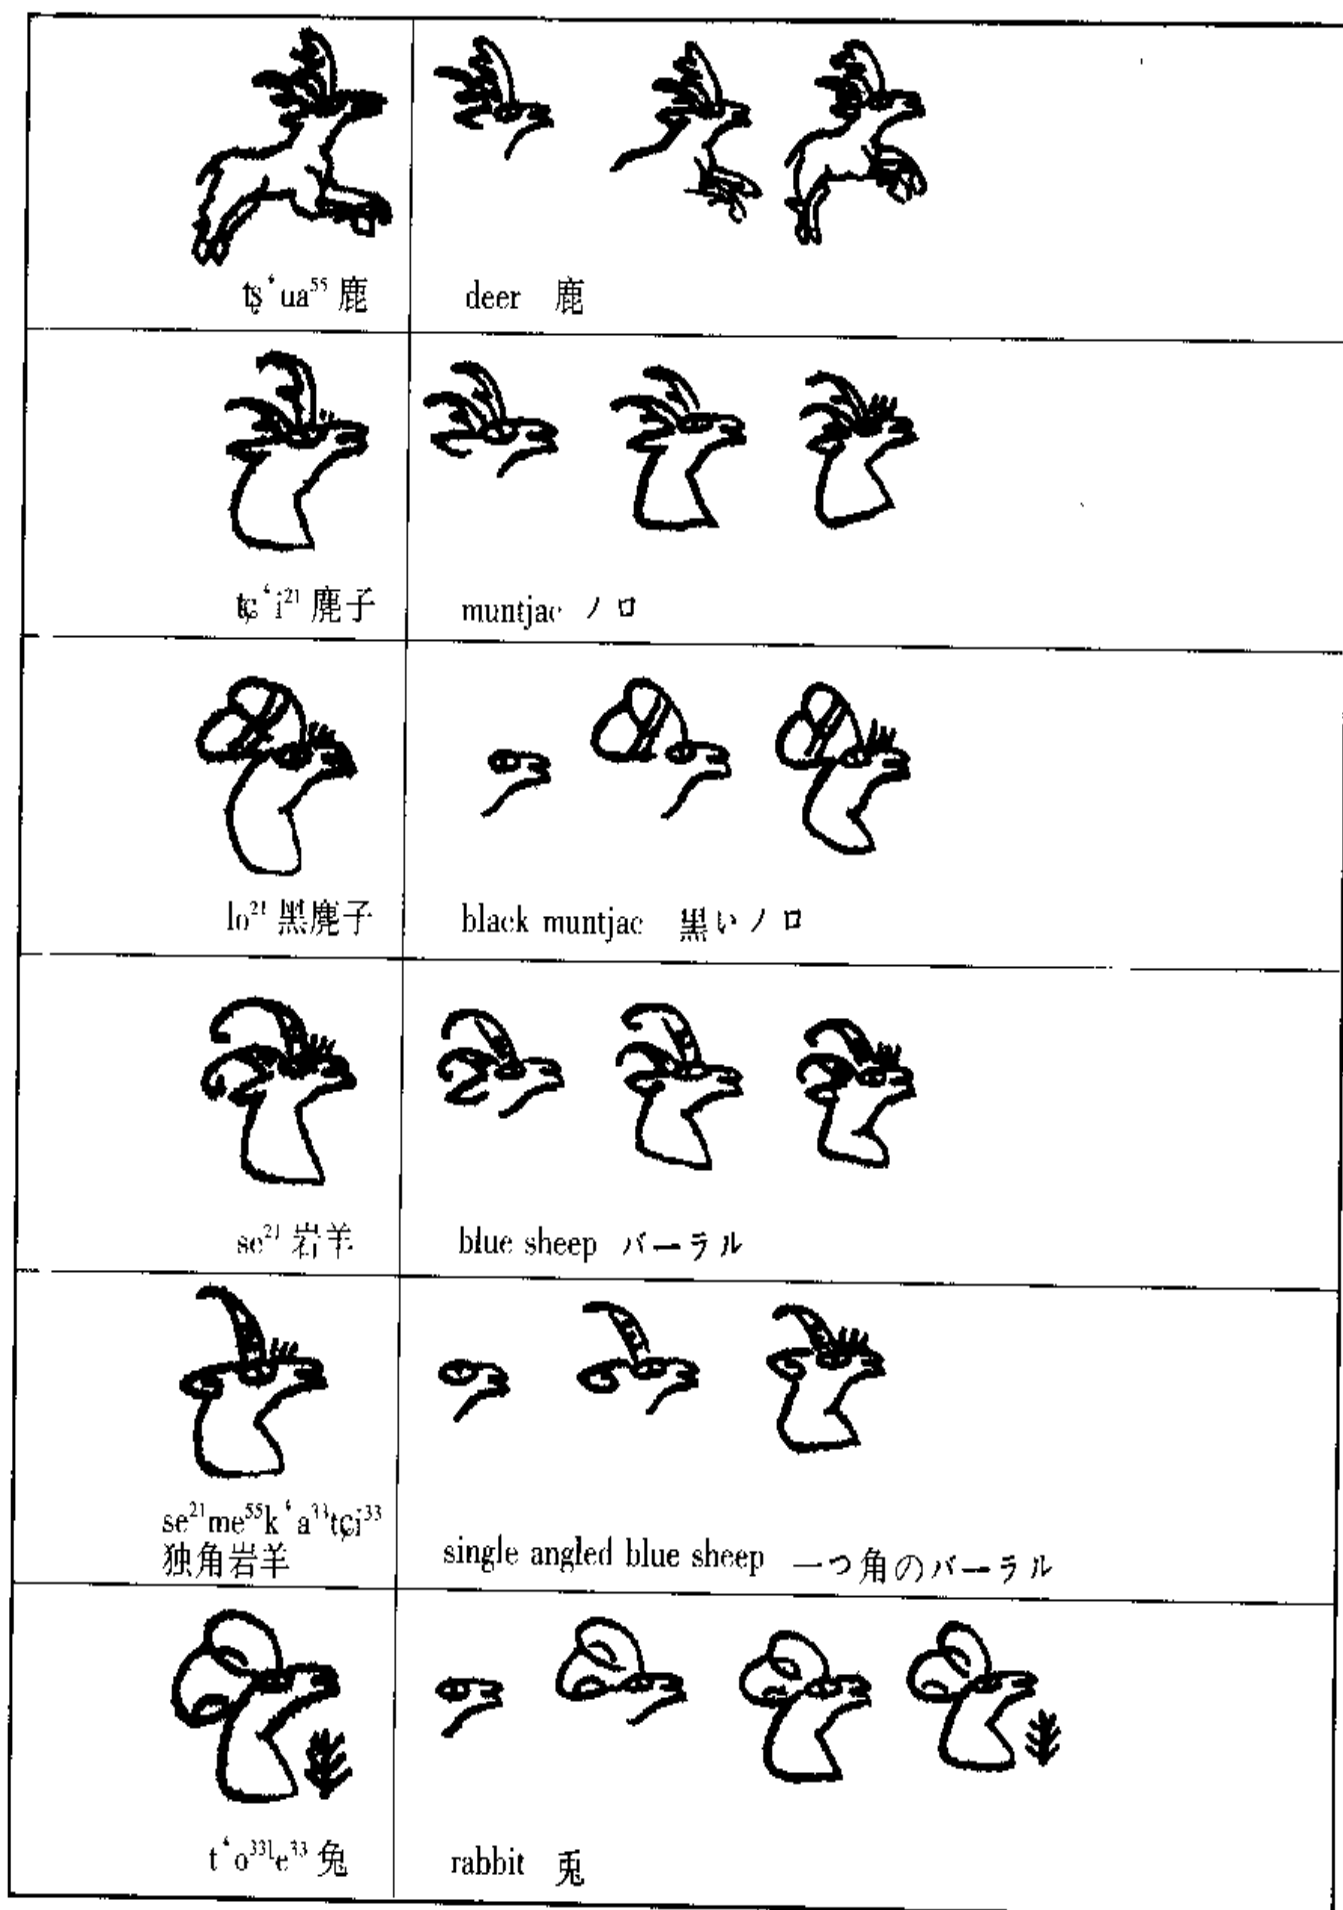 tʂ‘ua⁵⁵ 鹿
deer 鹿
tɕ‘i²¹ 麂子
muntjac ノロ
lo²¹ 黑麂子
black muntjac 黒いノロ
se²¹ 岩羊
blue sheep バーラル
se²¹me⁵⁵k‘a³³tɕi³³
独角岩羊
single angled blue sheep 一つ角のバーラル
t‘o³³le³³ 兔
rabbit 兎